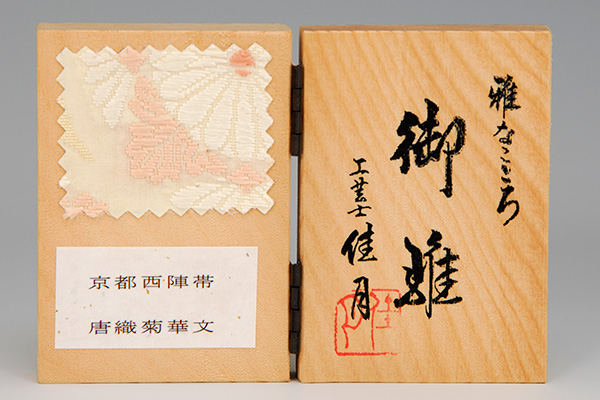 雅なこころ
御雛
工芸士 佳月
京都西陣帯
唐織菊華文